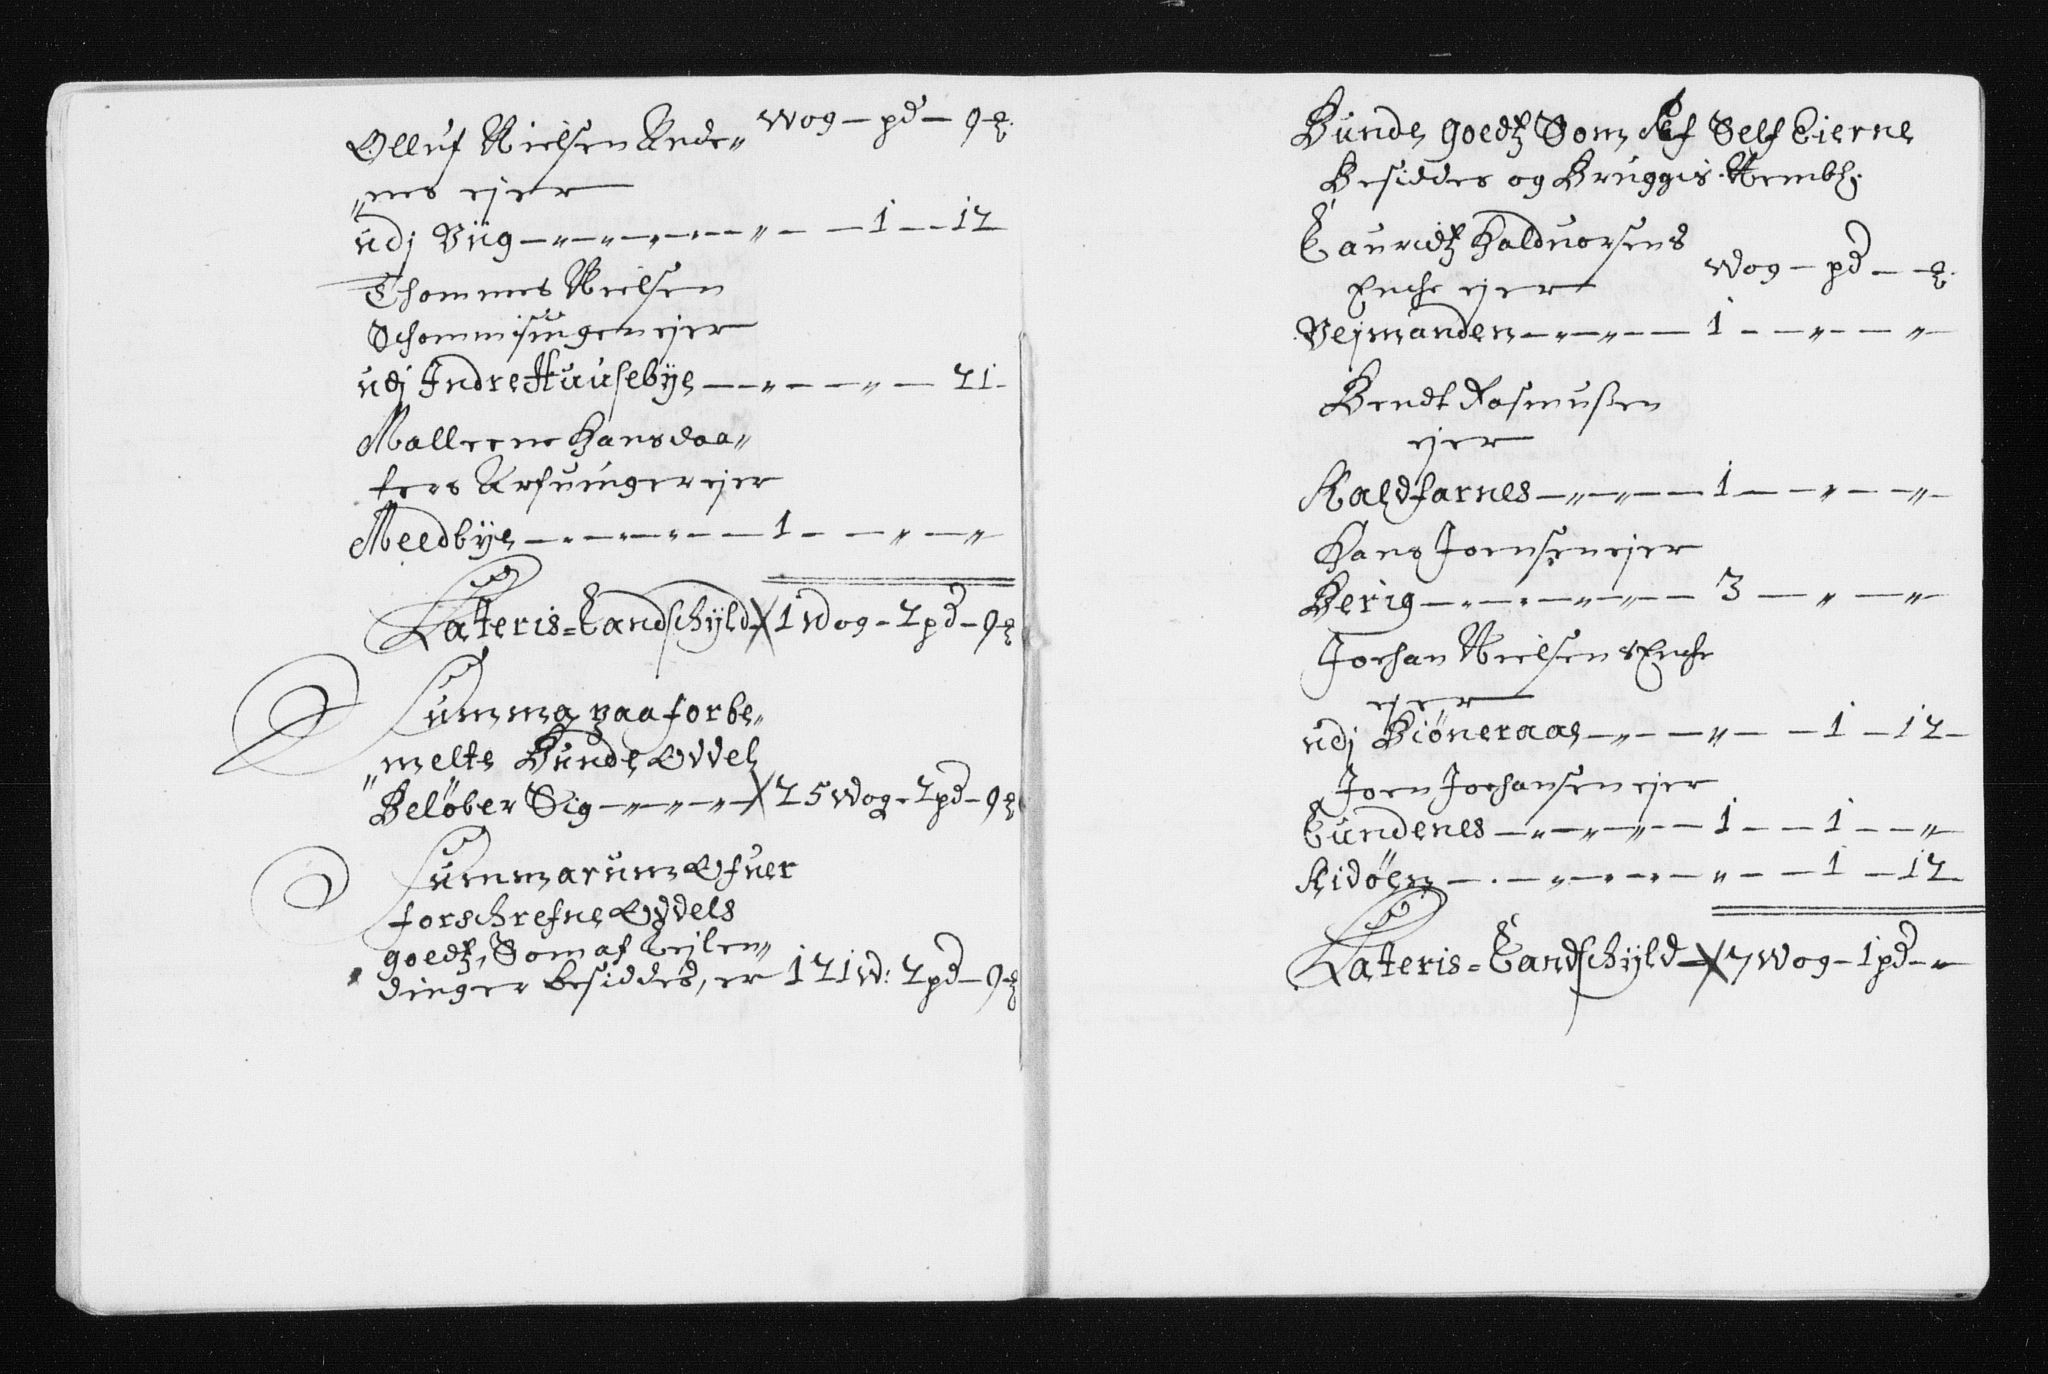 Olluf Nielsen Ande„ Wog — pd — 9 ꝶ.
„nes ejer
udj Viig — „ — „ — „ — 1 — 12
Thommes Nielsen
Schommisinger ejer
udj Indre Huusebye — „ — „ — 21
Malleene Hansdaa„
ters Arfuinger ejer
Meedbye — 1 — „ — „
Lateris = Landschyld 1 Wog - 2 pd - 9 ꝶ
Summa paa forbe„
„melte Bunde Oddel
Beløber Sig — „ — „ — 25 Wog - 2 pd - 9 ꝶ
Summarum Ofuer
forschrefne Oddels
goedtz, Som af Lejlen„
dinger besiddes, er 121 W: 2 pd - 9 ꝶ
Bunde goedtz Som Af Self Eierne
Besiddes og Bruggis Nembl:
Lauridtz Halduorsens
Enche ejer Wog — pd — ꝶ.
Vejmanden — „ — „ — 1 — „ — „
Bendt Rasmussen
ejer
Kaldfarnes — „ — „ — 1 — „ — „
Hans Joensen ejer
Berig — „ — „ — 3 — „ — „
Jochan Nielsens Enche
ejer
udj Biøneraas — „ — „ — 1 — 12 —
Joen Jochansen ejer
Lundenes — „ — „ — 1 — 1 — „
Kidøen — „ — „ — 1 — 12
Lateris = Landschyld 7 Wog — 1 pd — „